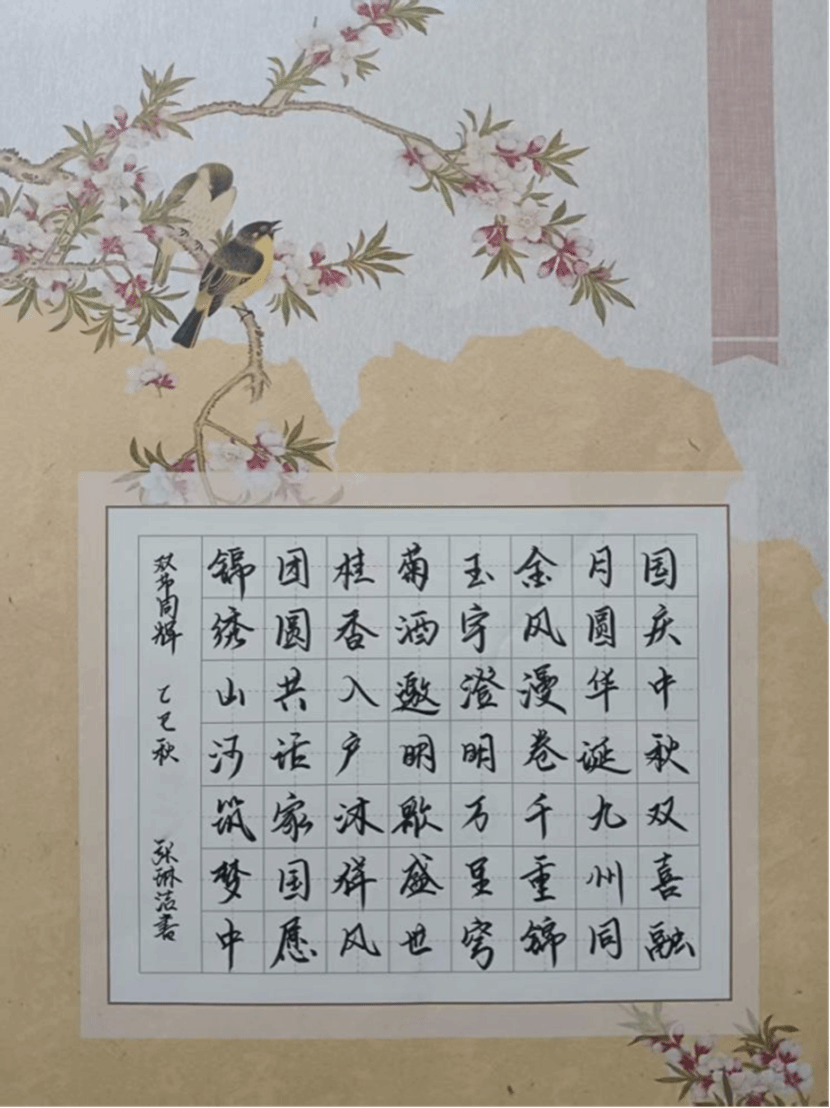 国庆中秋双喜融
月圆华诞九州同
金风漫卷千重锦
玉宇澄明万里穹
菊酒邀明歌盛世
桂香入户沐祥风
团圆共话家国愿
锦绣山河筑梦中
双节同辉 乙巳秋 张琳洁书